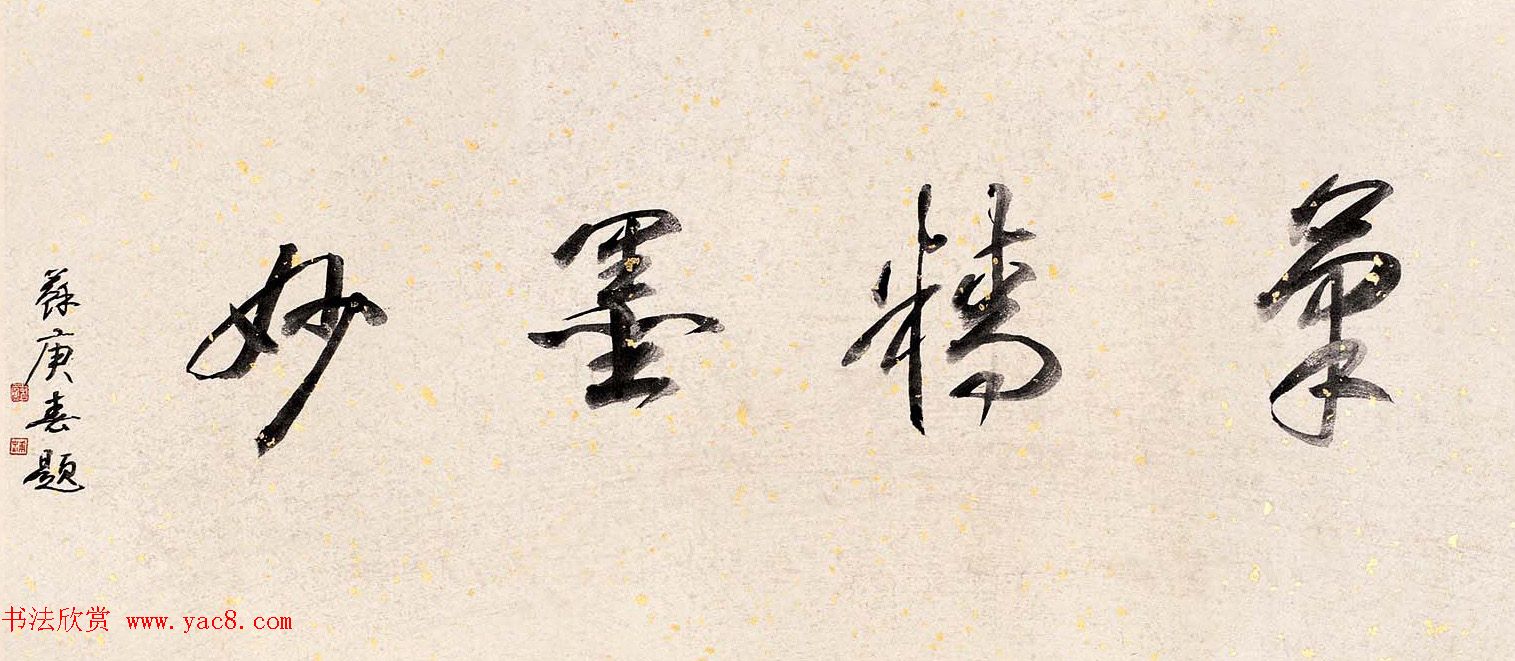 筆精墨妙
蘇庚春題
书法欣赏 www.yac8.com